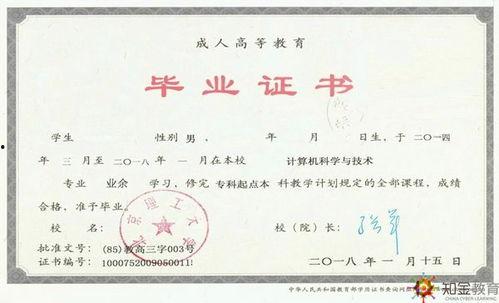 成人高等教育
毕业证书
学生 性别 男， 年 月 日生，于二〇一四
年 三 月至 二〇一八 年 一 月在本校 计算机科学与技术
专业 业余 学习，修完 专科起点本 科教学计划规定的全部课程，成绩
合格，准予毕业。
校 名： 京理工大 校（院）长：
批准文号：(85)教高三字003号
证书编号：1000752009050011
二〇一八 年 一 月 十五 日
中华人民共和国教育部学历证书查询网
知金教育
CHINA CYBER LEARNING